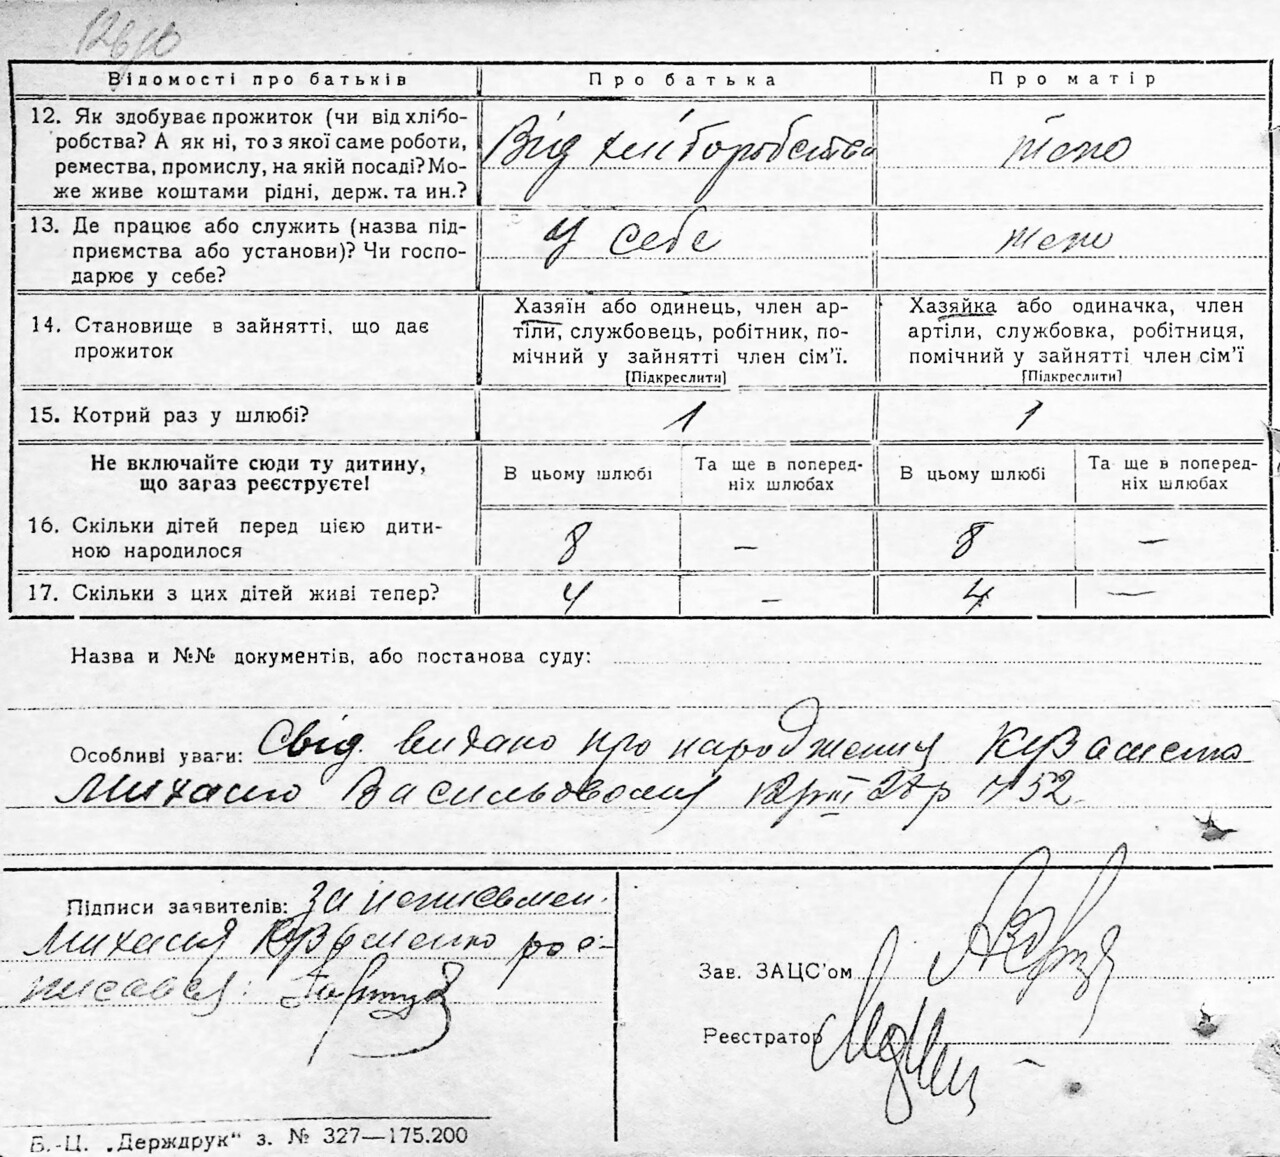 Відомості про батьків Про батька Про матір
12. Як здобуває прожиток (чи від хлібо-
робства? А як ні, то з якої саме роботи,
ремества, промислу, на якій посаді? Мо-
же живе коштами рідні, держ. та ин.?
Від хліборобства
тепо
13. Де працює або служить (назва під-
приємства або установи)? Чи госпо-
дарює у себе?
У себе
тепо
14. Становище в зайнятті, що дає
прожиток
Хазяїн або одинець, член ар-
тіли, службовець, робітник, по-
мічний у зайнятті член сім'ї.
[Підкреслити]
Хазяйка або одиначка, член
артіли, службовка, робітниця,
помічний у зайнятті член сім'ї
[Підкреслити]
15. Котрий раз у шлюбі? 1 1
Не включайте сюди ту дитину,
що загаз реєструєте!
В цьому шлюбі
Та ще в поперед-
ніх шлюбах
В цьому шлюбі
Та ще в поперед-
ніх шлюбах
16. Скільки дітей перед цією дити-
ною народилося
8 — 8 —
17. Скільки з цих дітей живі тепер? 4 — 4 —
Назва и №№ документів, або постанова суду:
Особливі уваги: Свід. видано про народження Кузьменка
Михайло Васильовича 27р 52
Підписи заявителів: За неписьмен.
Михайла Кузьменко рос-
писався:
Зав. ЗАЦС'ом
Реєстратор
Б.-Ц. „Держдрук“ з. № 327—175.200